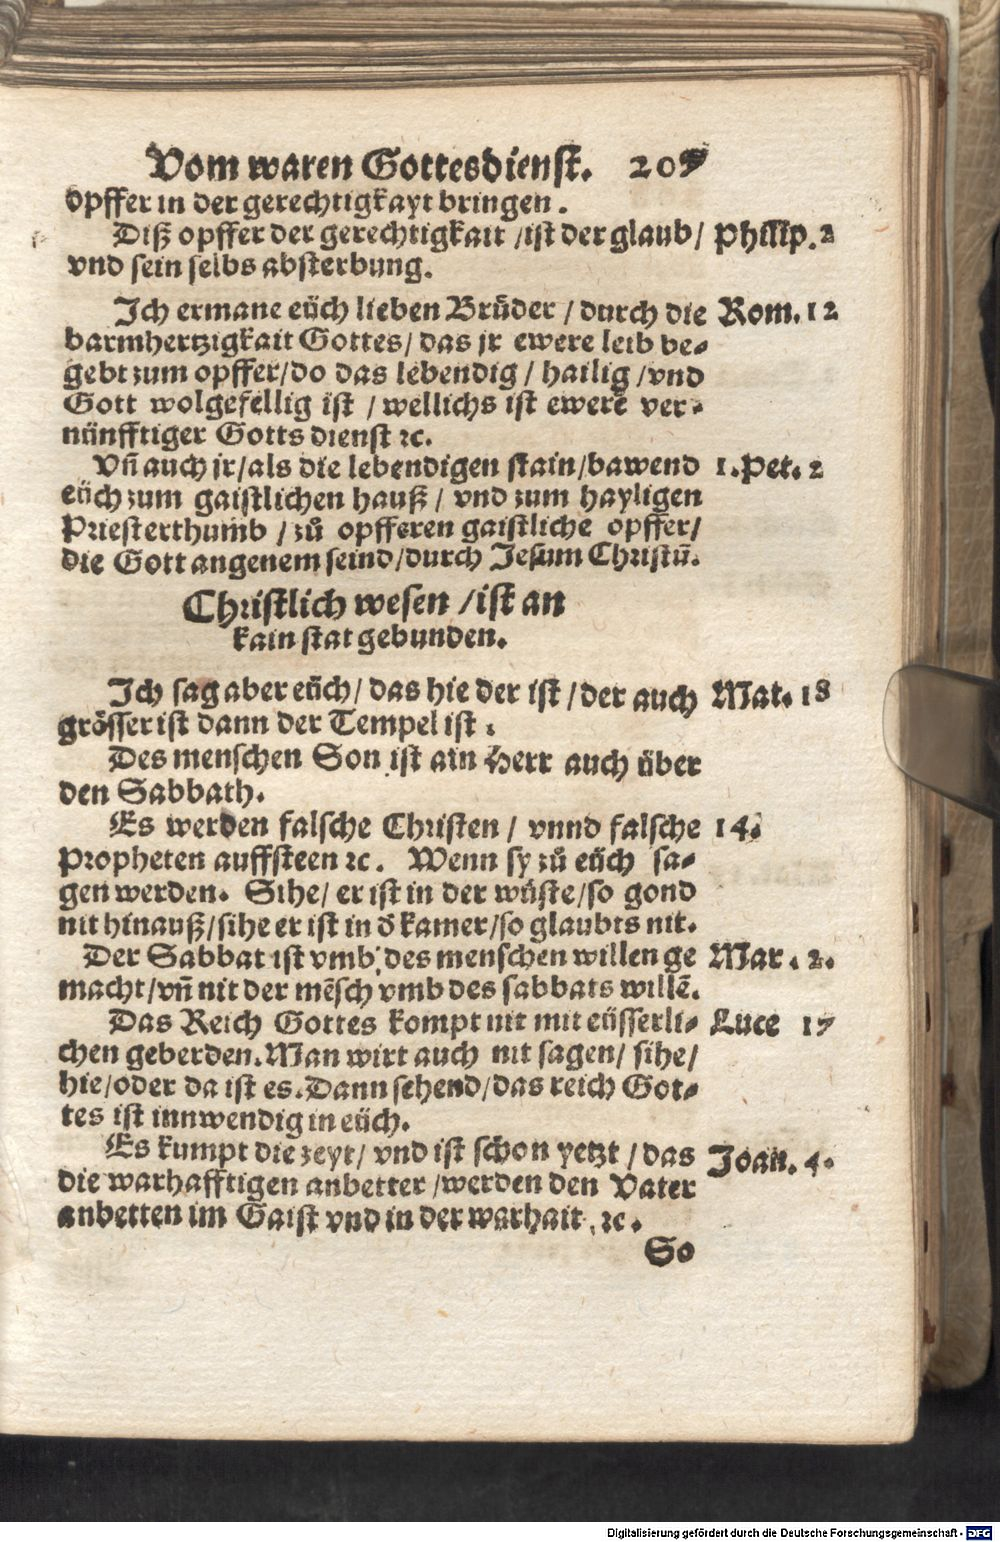 Vom waren Gottesdienst. 205
opffer in der gerechtigkayt bringen.
Diß opffer der gerechtigkait /ist der glaub/ Philip. 2
vnd sein selbs absterbung.
Ich ermane eüch lieben Brůder / durch die Rom. 12
barmhertzigkait Gottes/ das jr ewere leib be⸗
gebt zum opffer/do das lebendig / hailig /vnd
Gott wolgefellig ist / wellichs ist ewerē ver⸗
nünfftiger Gotts dienst ꝛc.
Vñ auch jr/als die lebendigen stain/bawend 1. Pet. 2
eüch zum gaistlichen hauß / vnd zum hayligen
Priesterthumb / zů opfferen gaistliche opffer/
die Gott angenem seind/durch Jesum Christū.
Christlich wesen /ist an
kain stat gebunden.
Ich sag aber eüch/ das hie der ist /der auch Mat. 18
grösser ist dann der Tempel ist.
Des menschen Son ist ain Herr auch über
den Sabbath.
Es werden falsche Christen / vnnd falsche 14.
Propheten auffsteen ꝛc. Wenn sy zů eüch sa⸗
gen werden. Sihe/ er ist in der wüste/so gond
nit hinauß/sihe er ist in ď kamer/so glaubts nit.
Der Sabbat ist vmb des menschen willen ge Mar. 2.
macht/vñ nit der mēsch vmb des sabbats willē.
Das Reich Gottes kompt nit mit eüsserli⸗ Luce 17
chen geberden. Man wirt auch nit sagen/ sihe/
hie/oder da ist es. Dann sehend/das reich Got⸗
tes ist innwendig in eüch.
Es kumpt die zeyt/ vnd ist schon yetzt / das Joan. 4.
die warhafftigen anbetter /werden den Vater
anbetten im Gaist vnd in der warhait. ꝛc.
So
Digitalisierung gefördert durch die Deutsche Forschungsgemeinschaft - DFG